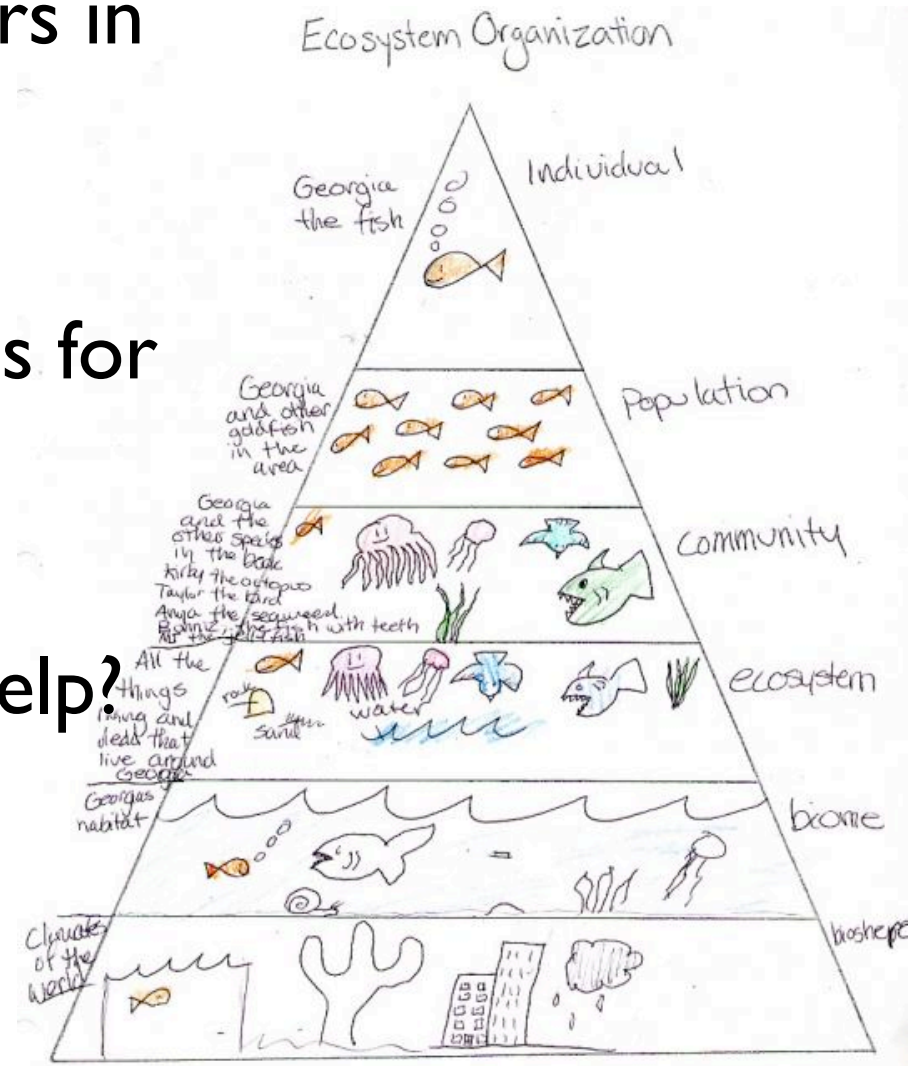 rs in
Ecosystem Organization
Individual
Georgia
the fish
s for
Georgia
and other
goldfish
in the
area
Population
Georgia
and the
other species
in the book
Kirby the octopus
Taylor the bird
Anya the seaweed
Bonnie, the fish with teeth
the jellyfish
community
elp?
All the
things
living and
dead that
live around
Georgia
rock
sand
water
ecosystem
Georgias
habitat
biome
Climates
of the
world
bioshepe